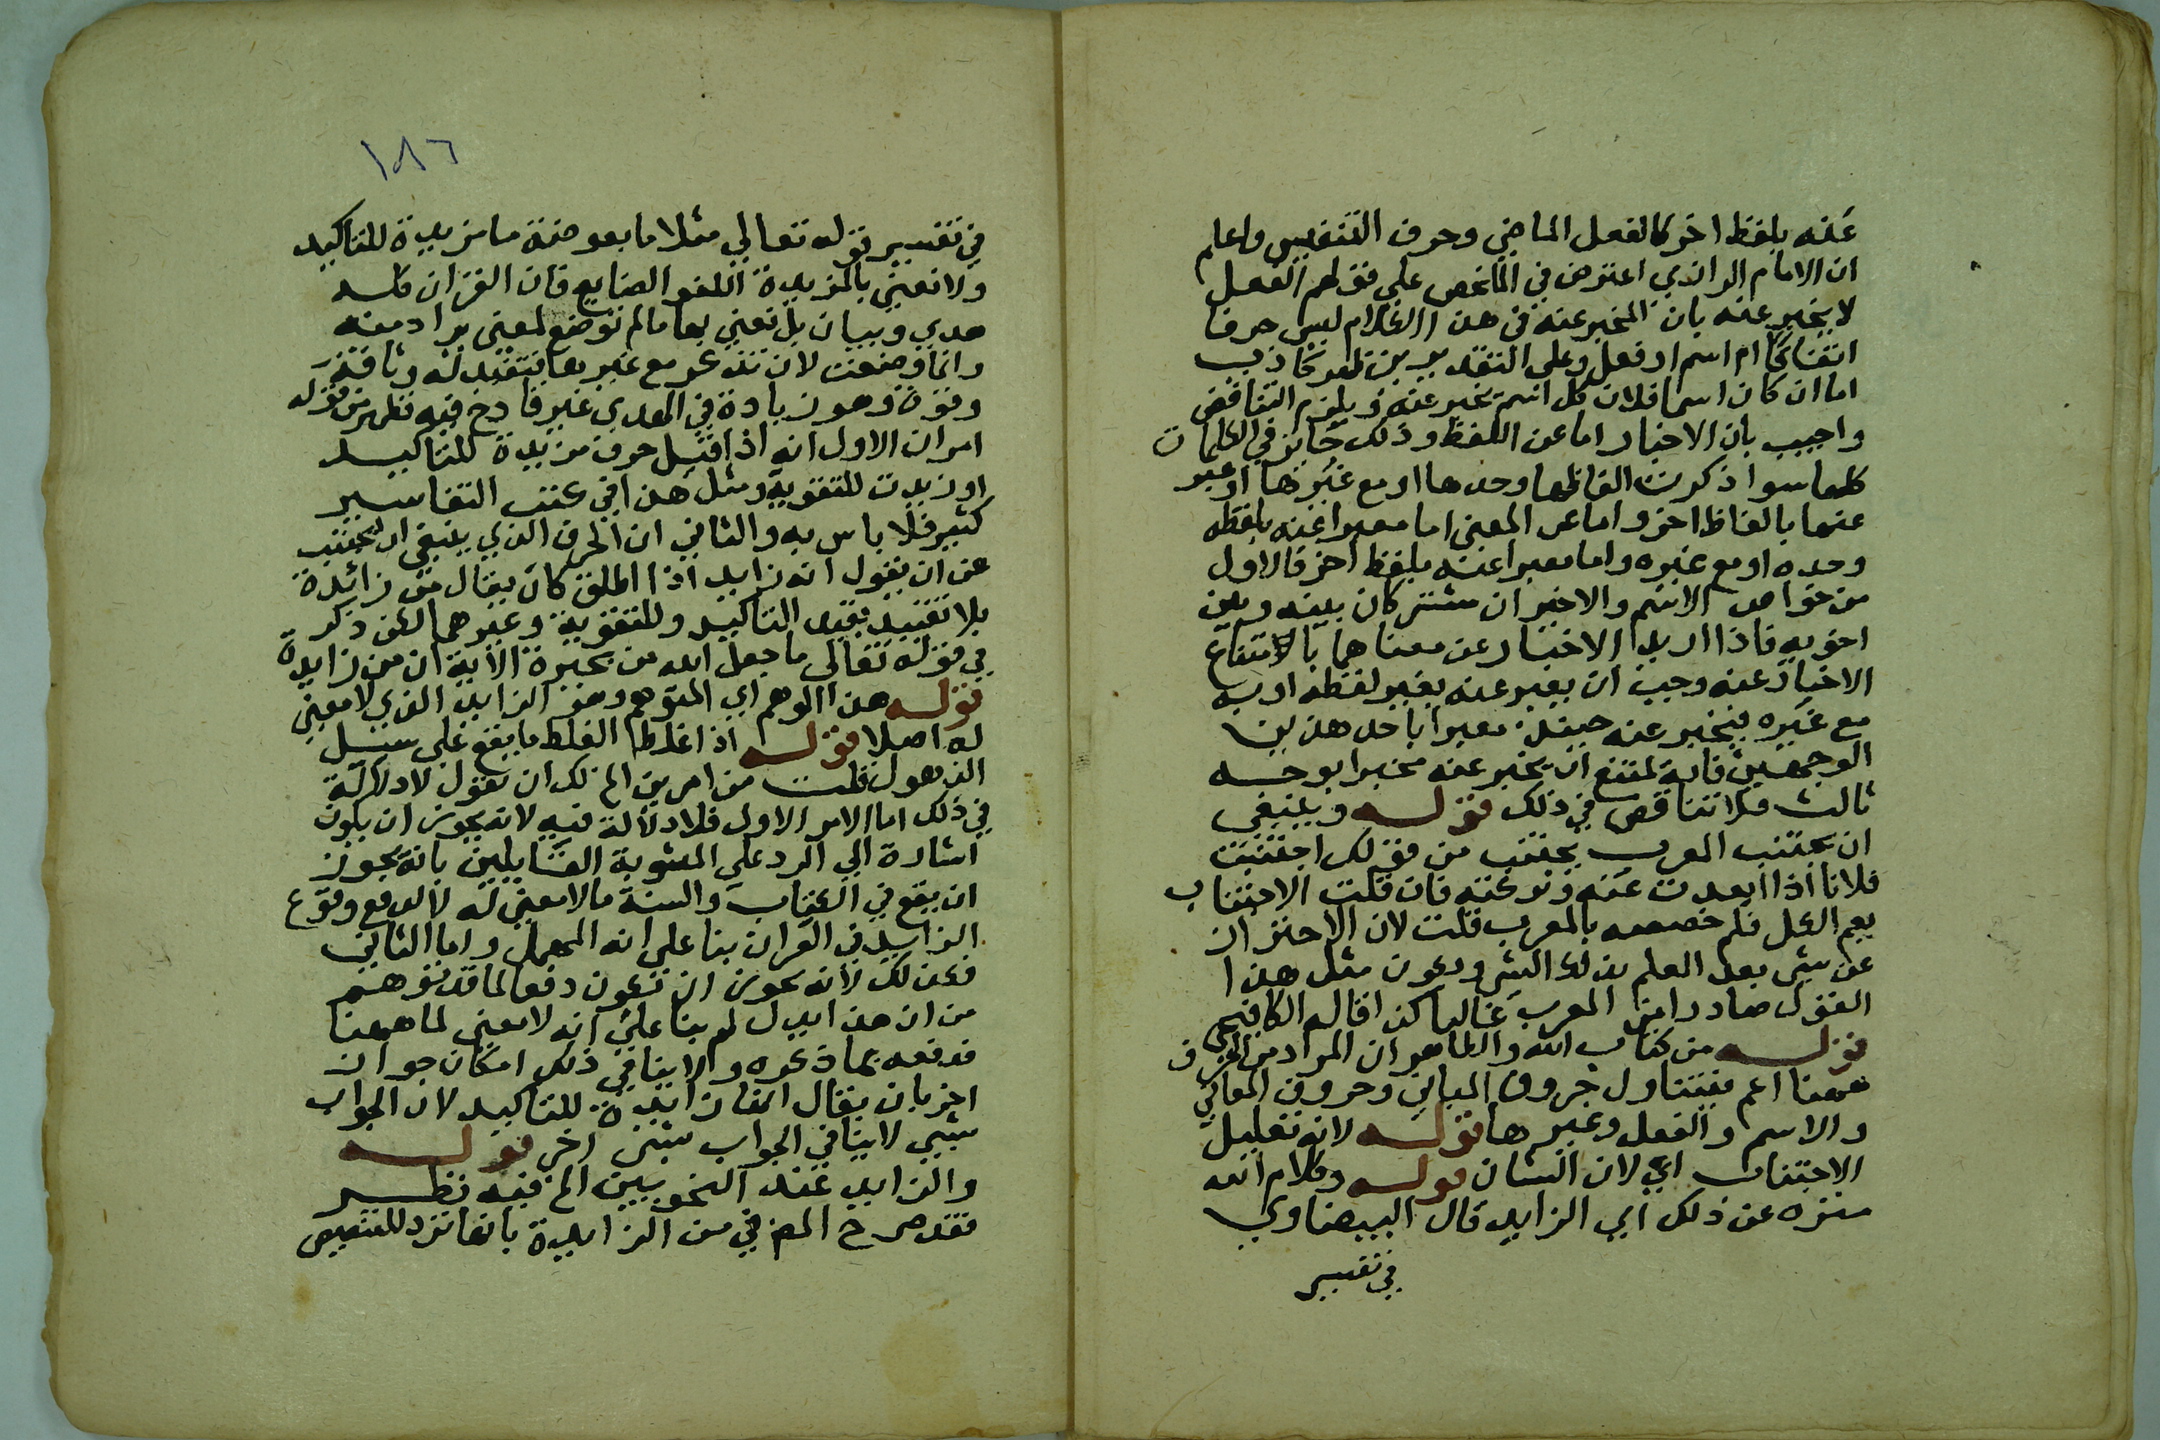 عنه بلفظ اخر كالفعل الماضي وحرف التنفيس واعلم
ان الامام الرازي اعترض في الملخص علي قولهم الفعل
لا يخبر عنه بان المخبر عنه في هذا الكلام ليس حرفا
اتفاقا ام اسم او فعل وعلي التقديرين فهو كاذب
اما ان كان اسما فلان كل اسم يخبر عنه ويلزم التناقض
واجيب بان الاخبار اما عن اللفظ وذلك جايز في الكلمات
كلها سوا ذكرت الفاظها وحدها او مع غيرها او عبر
عنها بالفاظ اخر واما عن المعنى اما معبرا عنه بلفظه
وحده او مع غيره واما معبرا عنه بلفظ اخر فالاول
من خواص الاسم والاخيران مشتركان بينه وبين
اخويه فاذا اريد الاخبار عن معناهما بالامتناع
الاخبار عنه وجب ان يعبر عنه بغير لفظه او به
مع غيره فيخبر عنه حينئذ معبرا باحد هذين
الوجهين فانه يمتنع ان يخبر عنه مخبرا بوجه
ثالث فلا تناقض في ذلك قوله وينبغي
ان يجتنب المعرب يجتنب من قولك اجتنبت
فلانا اذا ابعدت عنه وتركته فان قلت الاجتناب
يعم الكل فلم خصصه بالمعرب قلت لان الاحتراز
عن شي بعد العلم بذلك الشي ويكون مثل هذا
القول صادرا من المعرب غالبا كذا قاله الكافيجي
قوله من كتاب الله والظاهر ان المراد من الحرف
ههنا اعم فيتناول حروف المباني وحروف المعاني
والاسم والفعل وغيرها قوله لانه تعليل
الاجتناب اي لان الشان قوله وكلام الله
منزه عن ذلك اي الزايد قال البيضاوي
في تفسير
١٨٦
في تفسير قوله تعالي مثلا ما بعوضة ما مزيدة للتاكيد
ولا نعني بالمزيدة اللغو الضايع فان القران كله
هدي وبيان بل نعني بها ما لم توضع لمعنى يراد منه
وانما وضعت لان تذكر مع غيرها فتفيد له وثاقة
وقوة وهو زيادة في الهدي غير قادح فيه فظهر من قوله
امران الاول انه اذا قيل حرف مزيدة للتاكيد
او زيدت للتقوية ومثل هذا في كتب التفاسير
كثير فلا باس به والثاني ان الحرف الذي ينبغي ان يجتنب
عن ان يقول انه زايد اذا اطلق كان يقال من زائدة
بلا تقييد بقيد التاكيد وللتقوية وغيرهما لكن ذكر
في قوله تعالى ما جعل الله من بحيرة الاية ان من زايدة
قوله هذا الوهم اي المتوهم وهو الزايد الذي لا معنى
له اصلا قوله اذ الغلط ما يقع علي سبيل
الذهول قلت من امرين الم لك ان تقول لا دلالة
في ذلك اما الامر الاول فلا دلالة فيه لانه يجوز ان يكون
اشارة الي الرد علي الحشوية القايلين بانه يجوز
ان يقع في الكتاب والسنة ما لا معنى له لا لدفع وقوع
الزايد في القران بنا علي انه المهمل واما الثاني
فكذلك لانه يجوز ان تكون دفعا لما قد توهم
من ان هذا بنا علي انه لا معنى لما ههنا
فدفعه بما ذكره ولا ينافي ذلك امكان جواز
اخر بان يقال انها زايدة للتاكيد لان الجواب
بشي لا ينافي الجواب بشي اخر قوله
والزايد عند النحويين الم فيه نظر
فقد صرح المص في من الزايدة بانها تزد للتنصيص